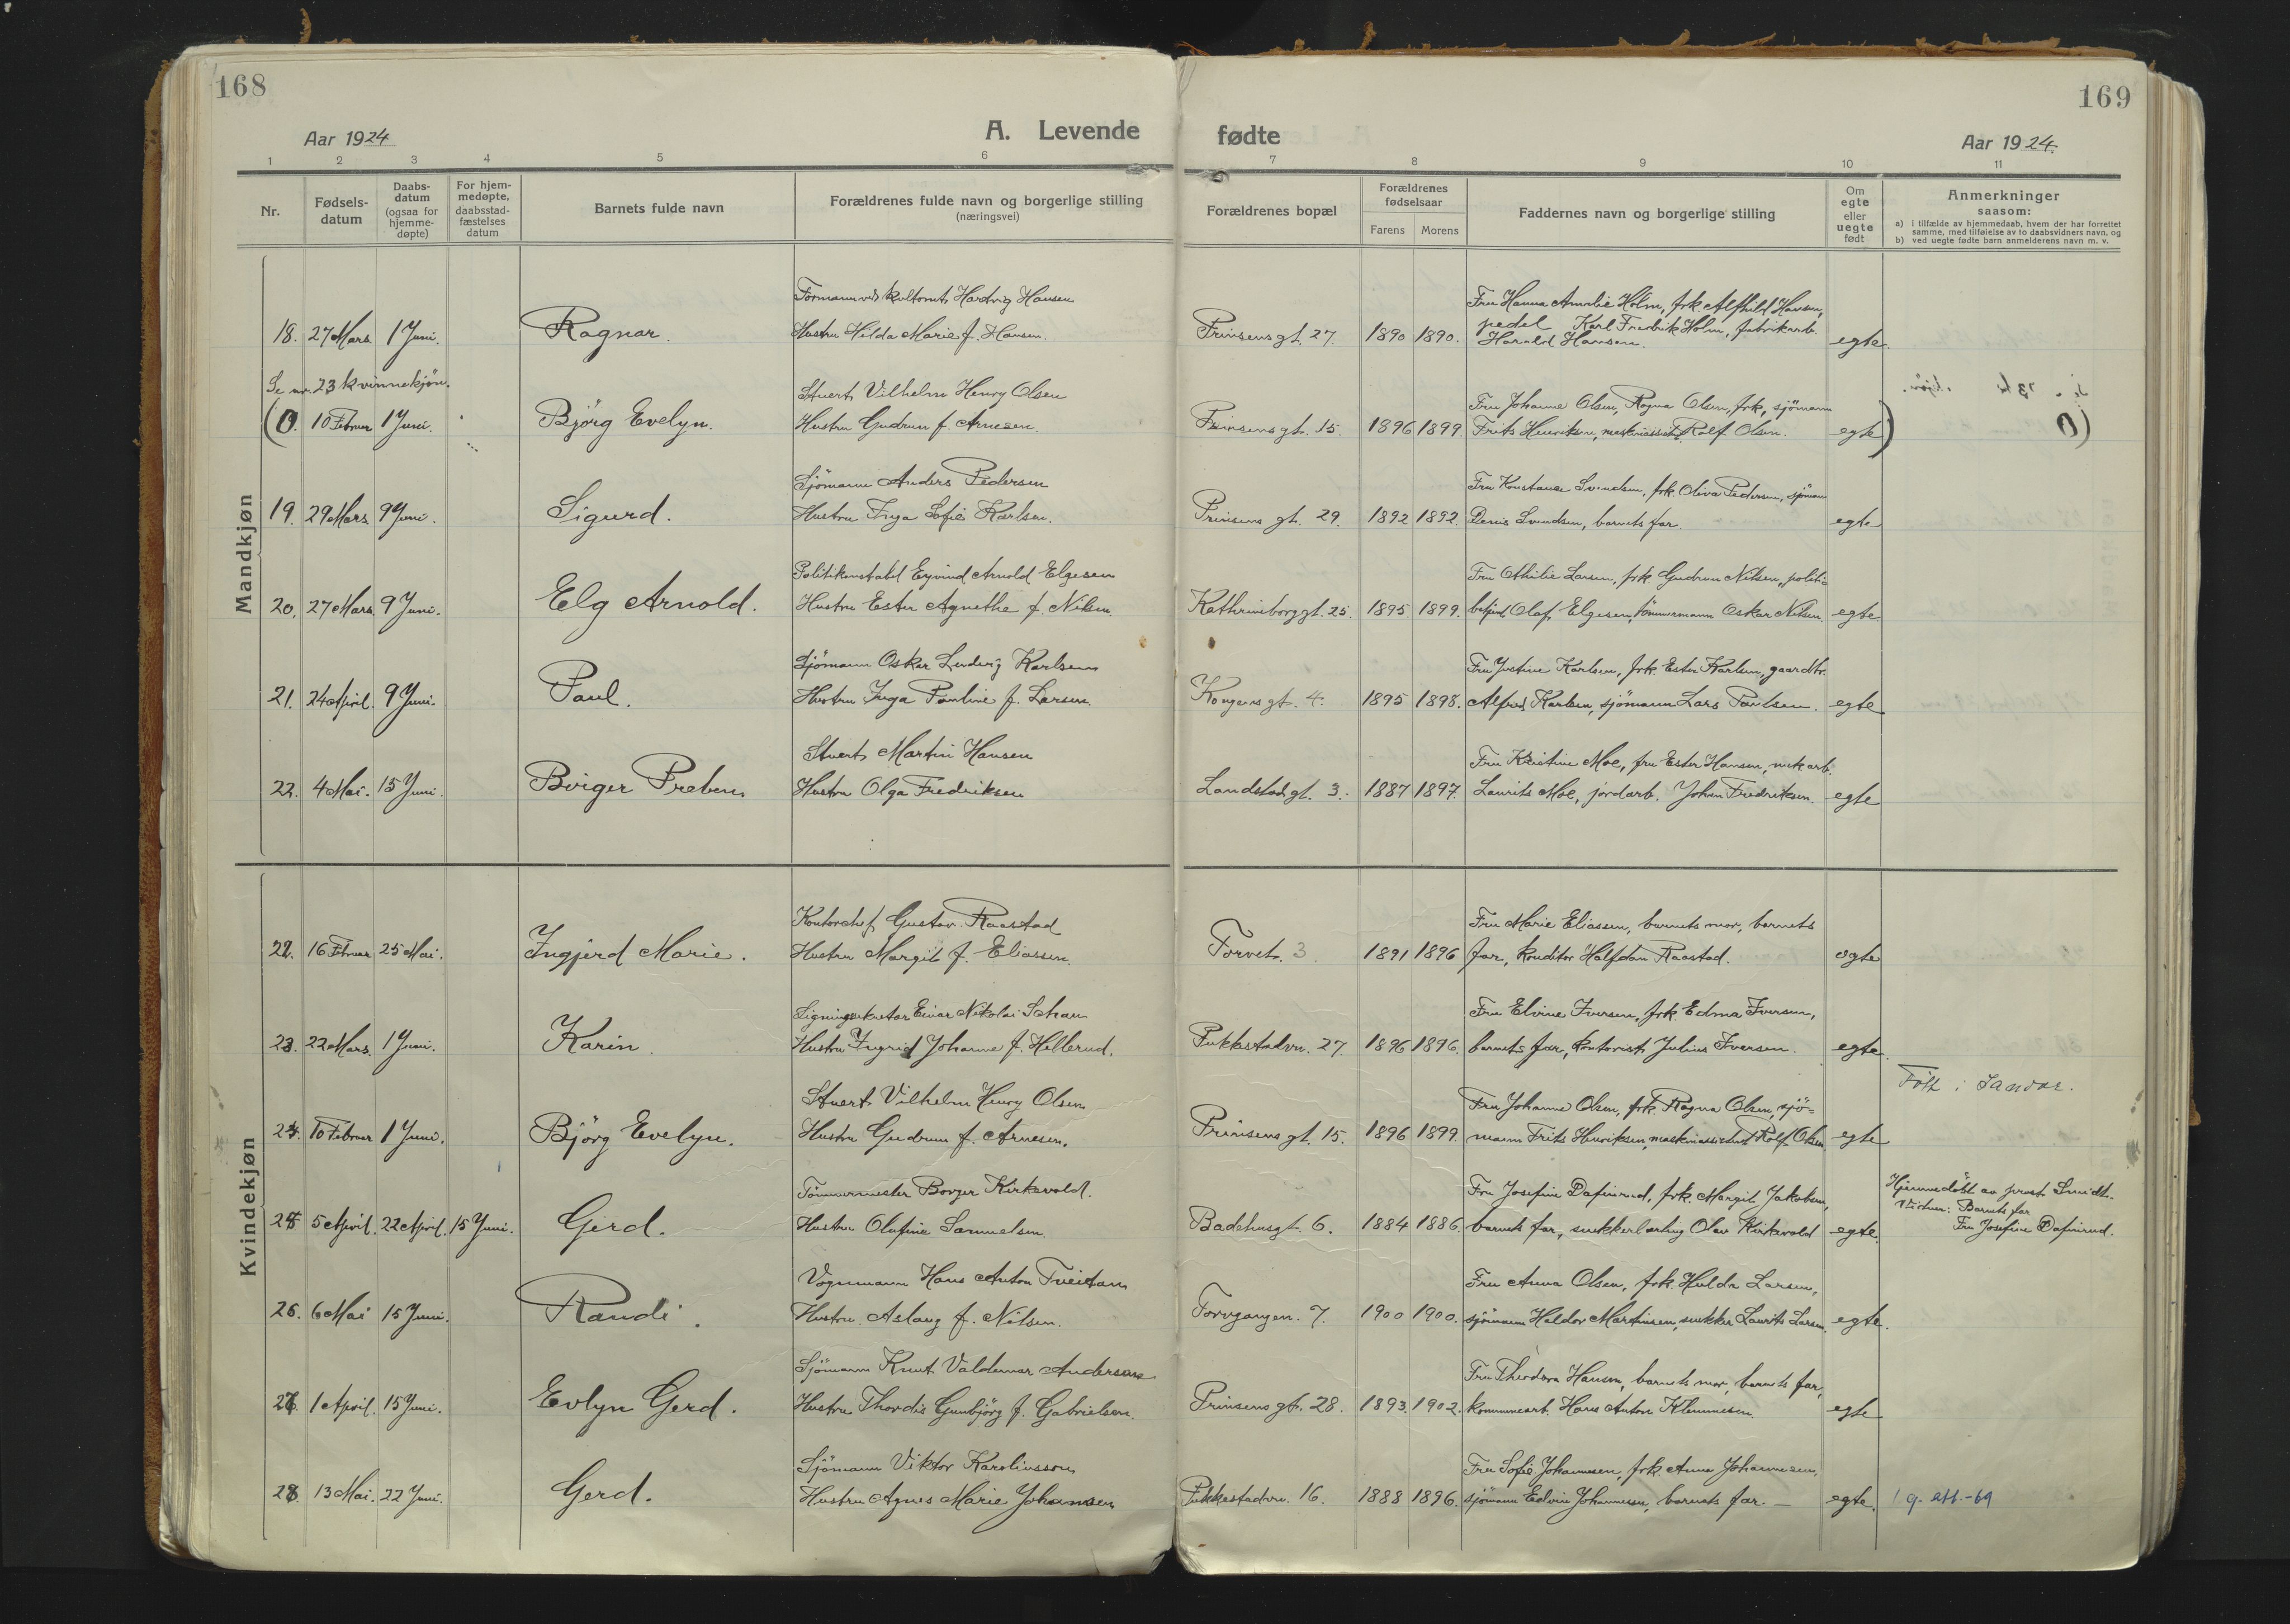 168
169
Aar 1924
A. Levende
fødte
Aar 1924.
1 2 3 4 5 6
7 8 9 10 11
Nr.
Fødsels-
datum
Daabs-
datum
(ogsaa for
hjemme-
døpte)
For hjem-
medøpte,
daabsstad-
fæstelses
datum
Barnets fulde navn
Forældrenes fulde navn og borgerlige stilling
(næringsvei)
Forældrenes bopæl
Forældrenes
fødselsaar
Farens Morens
Faddernes navn og borgerlige stilling
Om
egte
eller
uegte
født
Anmerkninger
saasom:
a) i tilfælde av hjemmedaab, hvem der har forrettet
samme, med tilføielse av to daabsvidners navn, og
b) ved uegte fødte barn anmelderens navn m. v.
Mandkjøn
Formann ved Hartvig Hansen
Fru Hanna Amalie Holm, frk. Alfhild Hansen,
18. 27 Mars. 1 Juni. Ragnar. Hustru Hilda Marie f. Hansen. Prinsensgt. 27. 1890 1890. pedel Karl Fredrik Holm, fabrikarb. egte.
Harald Hansen.
Se nr. 23 kvinnekjøn.
Stuert Vilhelm Henry Olsen
Fru Johanne Olsen, Ragna Olsen, frk., sjömann
(0. 10 Februar 1 Juni. Björg Evelyn. Hustru Gudrun f. Arnesen. Prinsensgt. 15. 1896 1899. Frits Henriksen, maskinassist. Rolf Olsen. egte)
Sjömann Anders Pedersen
Fru Konstanse Svendsen, frk. Oliva Pedersen, sjömann
19. 29 Mars. 9 Juni. Sigurd. Hustru Inga Sofie Karlsen. Prinsens gt. 29. 1892 1892. Denis Svendsen, barnets far. egte
Politikonstabel Eyvind Arnold Elgesen
Fru Othilie Larsen, frk. Gudrun Nilsen, politi-
20. 27 Mars. 9 Juni. Elg Arnold. Hustru Ester Agnethe f. Nilsen. Kathrineborggt. 25. 1895. 1899. betjent Olaf Elgesen, tömmermann Oskar Nilsen. egte.
Sjömann Oskar Ludvig Karlsen
Fru Justine Karlsen, frk. Ester Karlsen, gaardbr.
21. 24 April. 9 Juni. Paul. Hustru Inga Pauline f. Larsen. Kongensgt. 4. 1895 1898. Alfred Karlsen, sjömann Lars Paulsen. egte
Stuert Martin Hansen
Fru Kristine Moe, fru Ester Hansen, mek. arb.
22. 4 Mai. 15 Juni. Birger Preben. Hustru Olga Fredriksen Landstadsgt. 3. 1887 1897. Laurits Moe, jordarb. Johan Fredriksen. egte
Kvindekjøn
Kontorchef Gustav Raastad
Fru Marie Eliassen, barnets mor, barnets
22. 16 Februar 25 Mai. Ingjerd Marie. Hustru Margit f. Eliassen. Torvet. 3 1891 1896 far, konditor Halfdan Raastad. egte
Ligningssekretær Einar Nikolai Schau
Fru Elvine Iversen, frk. Edma Iversen,
23. 22 Mars. 1 Juni. Karin. Hustru Ingrid Johanne f. Hillerud. Pukkestadvn. 27. 1896 1896. barnets far, kontorist Julius Iversen. egte.
Stuert Vilhelm Henry Olsen
Fru Johanne Olsen, frk. Ragna Olsen, sjö-
Født i Sandar.
24. 10 Februar 1 Juni. Björg Evelyn. Hustru Gudrun f. Arnesen. Prinsens gt. 15. 1896 1899. mann Frits Henriksen, maskinassistent Rolf Olsen egte
Tömmermester Borger Kirkevold.
Fru Josefine Dafinrud, frk. Margit Jakobsen,
Hjemmedöbt av prest Smidt.
Vidner: Barnets far
25 5 April. 22 April. 15 Juni. Gerd. Hustru Olufine Samuelsen. Badehusgt. 6. 1884 1886. barnets far, snekkerlærling Olav Kirkevold egte.
Fru Josefine Dafinrud.
Vognmann Hans Anton Tveitan
Fru Anna Olsen, frk. Hulda Larsen,
26. 6 Mai 15 Juni. Randi. Hustru Aslaug f. Nilsen. Torvgangen. 7. 1900 1900. sjömann Haldor Martinsen, snekker Laurits Larsen. egte.
Sjömann Knut Valdemar Anderson
Fru Theodora Hansen, barnets mor, barnets far,
27. 1 April. 15 Juni. Evlyn Gerd. Hustru Thordis Gunbjörg f. Gabrielsen. Prinsensgt. 28. 1893. 1902. kommunearb. Hans Anton Klemmetsen. egte
Sjömann Viktor Karolinsson
Fru Sofie Johannesen, frk. Anna Johannesen,
28. 13 Mai. 22 Juni. Gerd. Hustru Agnes Marie Johannesen Pukkestadvn. 16. 1888 1896. sjömann Edvin Johannesen, barnets far. — egte. 1 g. att.-69